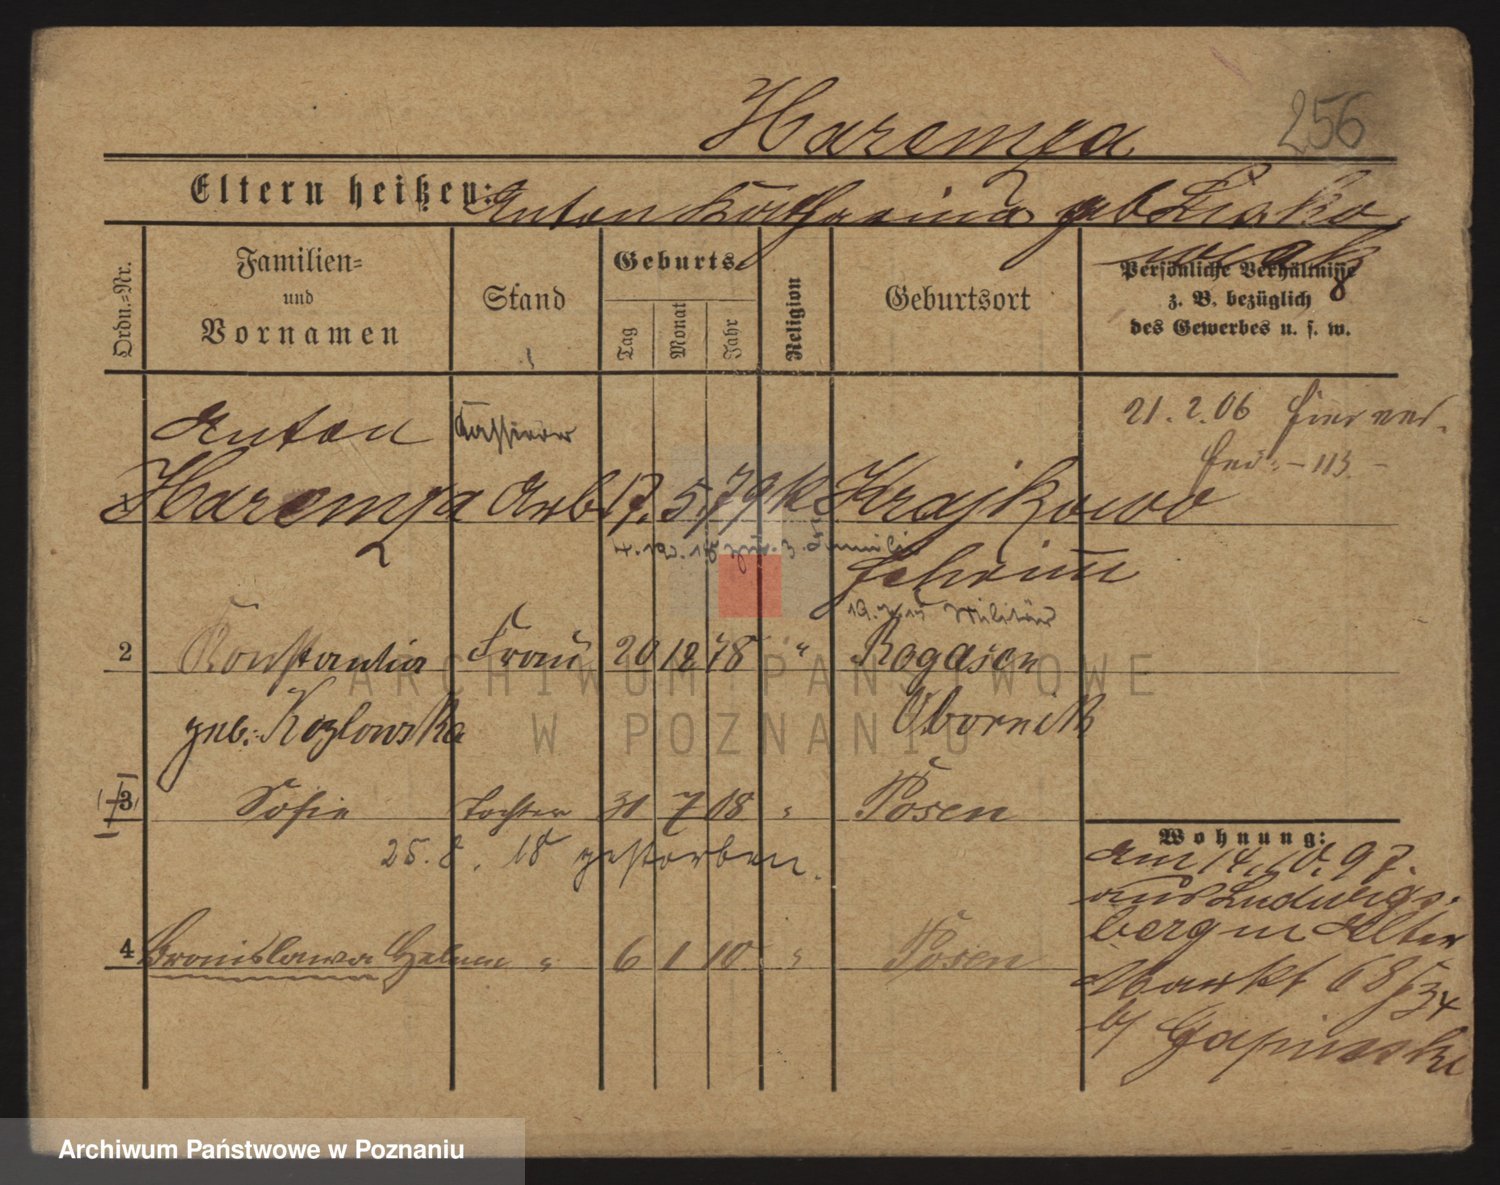 Haremza
256
Eltern heißen: Anton Katharina geb Liskowiak
Ordn.=Nr.
Familien=
und
Vornamen
Stand
Geburts
Tag
Monat
Jahr
Religion
Geburtsort
Persönliche Verhältnisse
z. B. bezüglich
des Gewerbes u. s. w.
8
21. 2. 06 hier
113
Anton
Kassierer
1 Haremza Arb. 17. 5. 79 k Krajkowo
Schrimm
19. 7. 15 Militär
2 Konstantia Frau 20 12 78 " Rogasen
geb: Kozlowska Obornik
3 Sofie Tochter 31 7 08 " Posen
25. 8. 18 gestorben.
Wohnung:
am 14. 10. 97.
aus Ludwigs-
berg n Alter
Markt 68
b/
4 Bronislawa Helene " 6 1 10 " Posen
ARCHIWUM PAŃSTWOWE
W POZNANIU
Archiwum Państwowe w Poznaniu